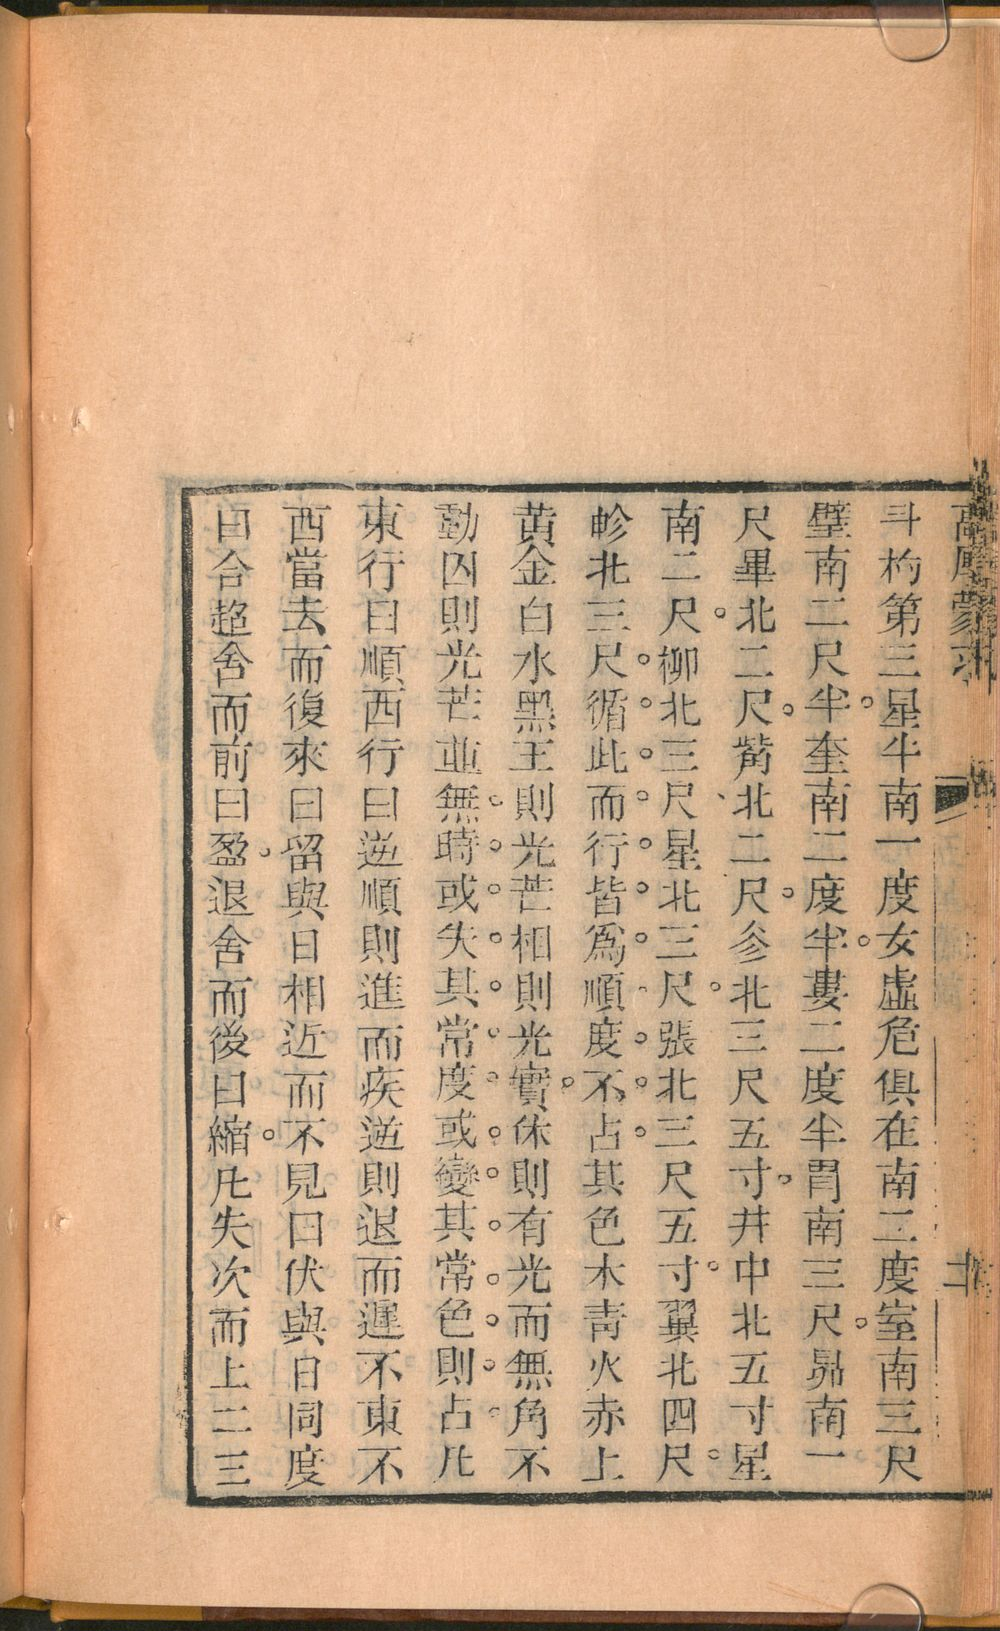 高厚蒙求
斗杓第三星牛南一度女虛危俱在南二度室南三尺
壁南二尺半奎南二度半婁二度半胃南三尺昴南一
尺畢北二尺觜北二尺參北三尺五寸井中北五寸星
南二尺柳北三尺星北三尺張北三尺五寸翼北四尺
軫北三尺循此而行皆爲順度不占其色木青火赤土
黃金白水黑王則光芒相則光實休則有光而無角不
動囚則光芒並無時或失其常度或變其常色則占凡
東行曰順西行曰逆順則進而疾逆則退而遲不東不
西當去而復來曰留與日相近而不見曰伏與日同度
曰合超舍而前曰盈退舍而後曰縮凡失次而上二三